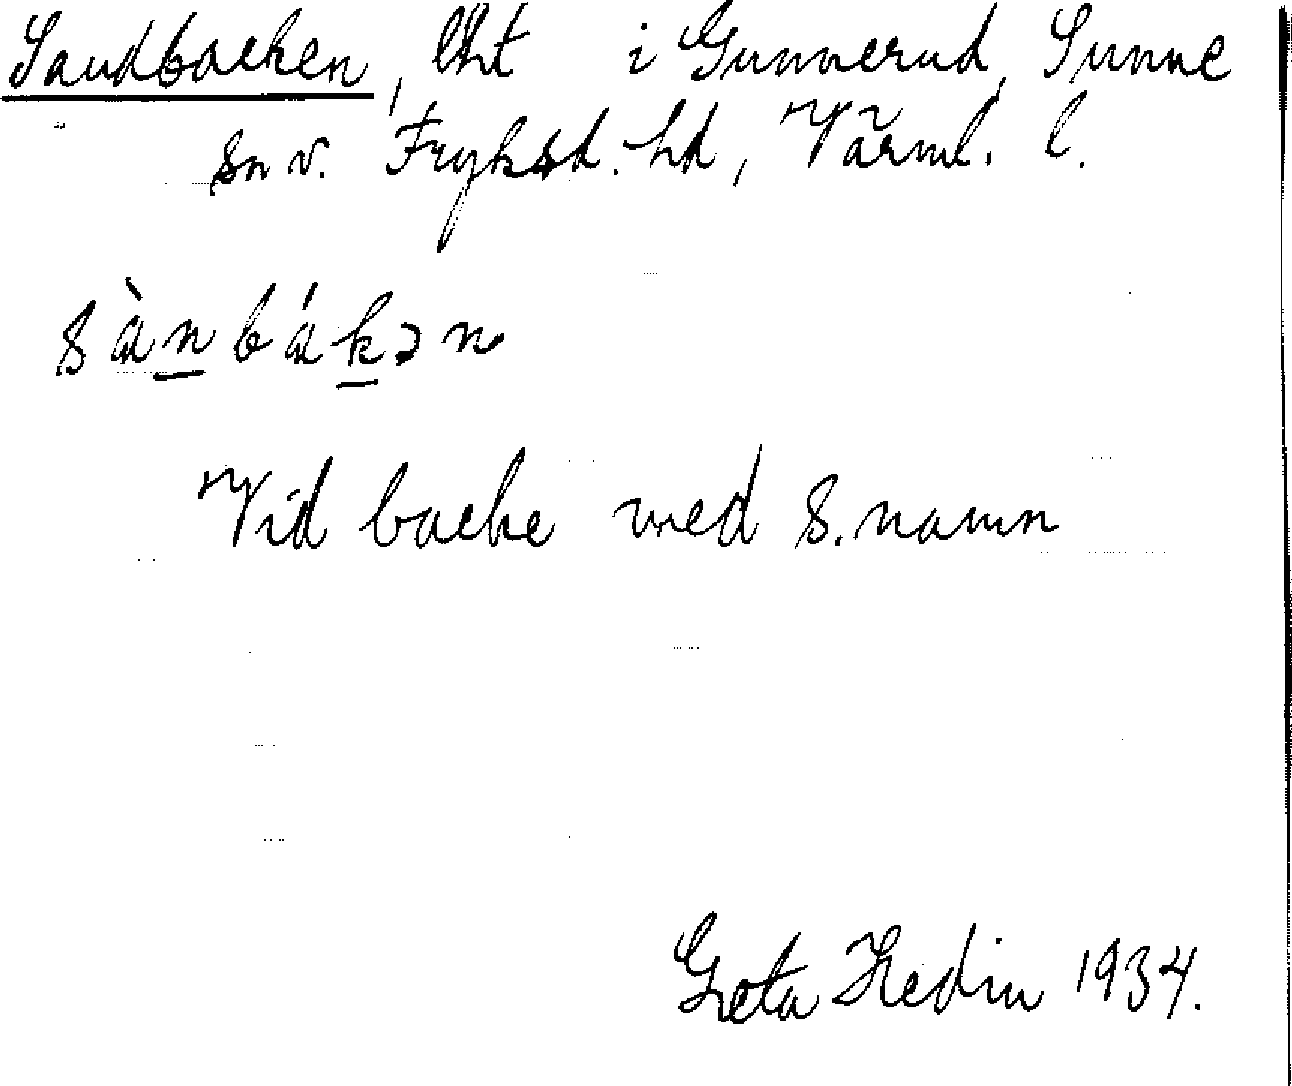 Sandbacken, lht i Gunnerud, Sunne
sn v. Fryksd. hd, Värml. l.
sànbákən
Vid backe med s. namn
Greta Hedin 1934.